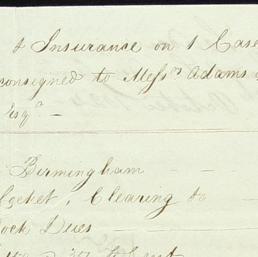 & Insurance on 1 Case
consigned to Mess^rs Adams
Esq^r -
Birmingham - -
Cocket, Clearing to
Dock Dues